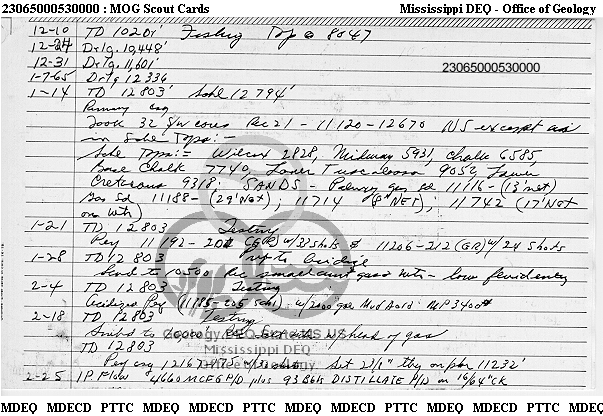 23065000530000 : MOG Scout Cards Mississippi DEQ - Office of Geology
12-10 TD 10201' Fishing Top @ 8047
12-24 Drlg. 10,448'
12-31 Drlg. 11,601'
23065000530000
1-7-65 Drlg 12336
1-14 TD 12803' Schl 12794'
Running csg
Took 32 S/W cores Rec 21 - 11120-12670 NS except as
in Schl Tops:-
Schl Tops:- Wilcox 2828, Midway 5931, Chalk 6585,
Base Chalk 7740, Lower Tuscaloosa 9052, Lower
Cretaceous 9318, SANDS - Paluxy gas sd 11116 - (13' net)
Gas Sd 11188 - (29' Net); 11714 (8' NET); 11742 (17' Net
on Wtr)
1-21 TD 12803 Testing
Perf 11192-202 (GR) w/32 shots & 11206-212 (GR) w/24 shots
1-28 TD 12803 Prep to acidize
to 10500 Rec small amt gas - low
2-4 TD 12803 Testing
Acidized Perf (11185-205 Schl) w/2000 gal Mud Acid MP 3400#
2-18 TD 12803 Testing
Swbd to w/head of gas
Geology DEQ State MS US
Mississippi DEQ
Office of Geology
TD 12803
Perf csg Set 2 3/8" tbg on pkr 11232'
2-25 I.P. Flow 4660 MCFGP/D plus 93 Bbls DISTILLATE P/D on 16/64" CK
MDEQ MDECD PTTC MDEQ MDECD PTTC MDEQ MDECD PTTC MDEQ MDECD PTTC MDEQ